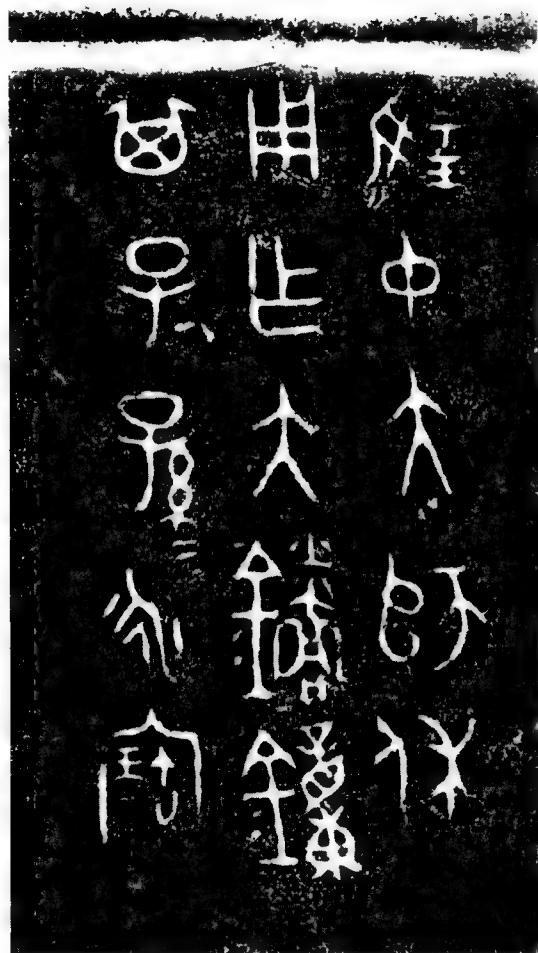 揚中大師休
用乍大鐘
其子=孫=永寶